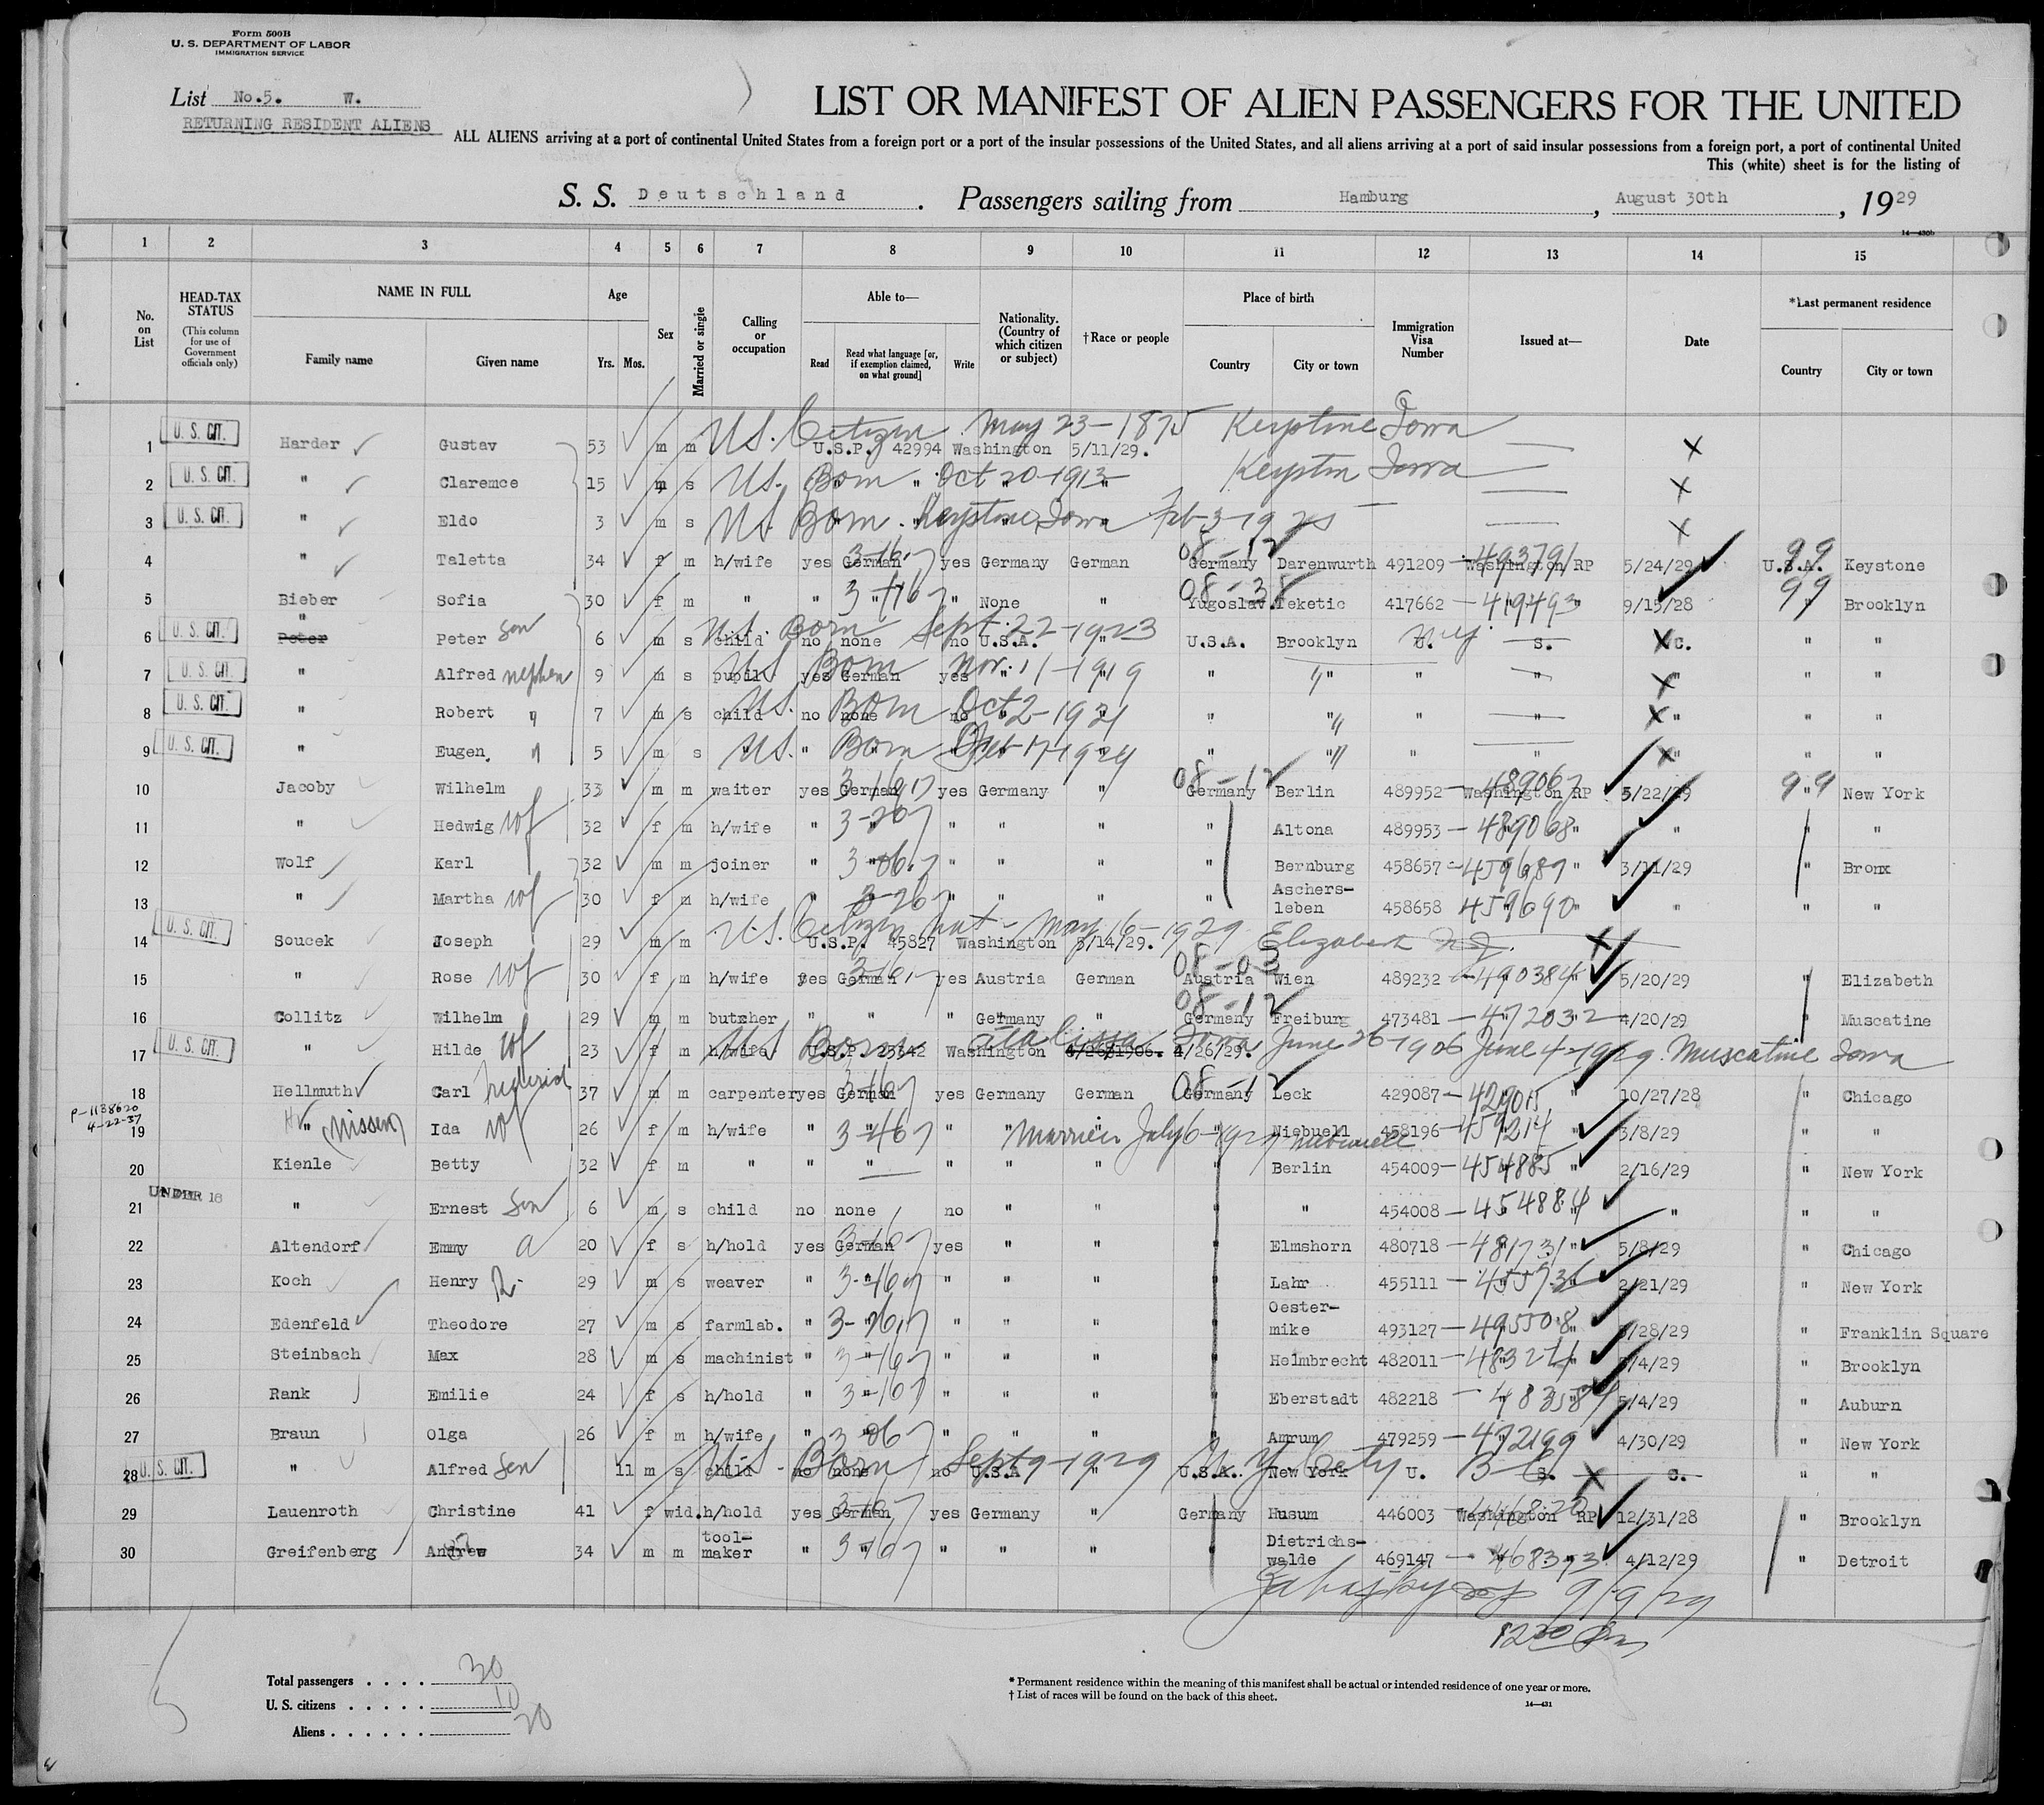 Form 500B
U. S. DEPARTMENT OF LABOR
IMMIGRATION SERVICE
List No.5. W.
RETURNING RESIDENT ALIENS
LIST OR MANIFEST OF ALIEN PASSENGERS FOR THE UNITED
ALL ALIENS arriving at a port of continental United States from a foreign port or a port of the insular possessions of the United States, and all aliens arriving at a port of said insular possessions from a foreign port, a port of continental United
This (white) sheet is for the listing of
S. S. Deutschland . Passengers sailing from Hamburg , August 30th , 1929
14—430b
1 2 3 4 5 6 7 8 9 10 11 12 13 14 15
No. on List
HEAD-TAX STATUS (This column for use of Government officials only)
NAME IN FULL Family name Given name
Age Yrs. Mos.
Sex
Married or single
Calling or occupation
Able to— Read Read what language [or, if exemption claimed, on what ground] Write
Nationality. (Country of which citizen or subject)
†Race or people
Place of birth Country City or town
Immigration Visa Number
Issued at—
Date
*Last permanent residence Country City or town
1 U. S. CIT. Harder Gustav 53 m m U.S. Citizen May 23-1875 Keystone Iowa U.S.P. 42994 Washington 5/11/29.
2 U. S. CIT. " Claremce 15 m s U.S. Born " Oct 20-1913 " Iowa
3 U. S. CIT. " Eldo 3 m s U.S. Born Keystone, Iowa Feb-3-1925
4 " Taletta 34 f m h/wife yes German yes Germany German 08-12 Germany Darenwurth 491209 Washington RP 493791 5/24/29 99 U.S.A. Keystone
5 Bieber Sofia 30 f m " " " " None " 08-38 Yugoslav. Teketic 417662 — 419493 " 9/15/28 99 " Brooklyn
6 U. S. CIT. " Peter Peter son 6 m s child U.S. Born Sept. 22-1923 no none no U.S.A. " U.S.A. Brooklyn U. S. C. " "
7 U. S. CIT. " Alfred nephew 9 m s pupil U.S. Born Nov. 11-1919 yes German yes " " " " " " " "
8 U. S. CIT. " Robert " 7 m s child U.S. Born Oct 2-1921 no none no " " " " " " " "
9 U. S. CIT. " Eugen. " 5 m s " U.S. Born Feb-17-1924 " " " " " " " "
10 Jacoby Wilhelm 33 m m waiter yes German yes Germany " 08-12 Germany Berlin 489952 Washington RP 489067 5/22/29 99 " New York
11 " Hedwig wf 32 f m h/wife " " " " " " Altona 489953 — 489068 " " " "
12 Wolf Karl 32 m m joiner " " " " " " Bernburg 458657 — 459687 " 3/11/29 " Bronx
13 " Martha wf 30 f m h/wife " " " " " " Aschers-leben 458658 459690 " " " "
14 U. S. CIT. Soucek Joseph 29 m m U.S. Citizen nat - May 16-1929 Elizabeth N.J. U.S.P. 45827 Washington 5/14/29.
15 " Rose wf 30 f m h/wife yes German yes Austria German 08-03 Austria Wien 489232 — 490384 " 5/20/29 " Elizabeth
16 Collitz Wilhelm 29 m m butcher " " " Germany " 08-12 Germany Freiburg 473481 — 472032 4/20/29 " Muscatine
17 U. S. CIT. " Hilde wf 23 f m h/wife U.S. Born Atalissa Iowa June 26-1906 June 4-1929. Muscatine Iowa U.S.P. 25342 Washington 4/26/29.
18 Hellmuth Carl 37 m m carpenter yes German yes Germany German 08-12 Germany Leck 429087 — 429015 " 10/27/28 " Chicago
P-1138620
4-22-37
19 " (Nissen) Ida wf 26 f m h/wife " " " " " " Niebuell 458196 — 459214 3/8/29 " " Married July 6-1929 Niebuell
20 Kienle Betty 32 f m " " " " " " " Berlin 454009 — 454885 " 2/16/29 " New York
21 UNDER 18 " Ernest son 6 m s child no none no " " " " 454008 — 454884 " " "
22 Altendorf Emmy 20 f s h/hold yes German yes " " " Elmshorn 480718 — 481731 " 5/8/29 " Chicago
23 Koch Henry 29 m s weaver " " " " " " Lahr 455111 — " 2/21/29 " New York
24 Edenfeld Theodore 27 m s farmlab. " " " " " " Oester-mike 493127 — 495508 " 5/28/29 " Franklin Square
25 Steinbach Max 28 m s machinist " " " " " " Helmbrecht 482011 — 483274 " 5/4/29 " Brooklyn
26 Rank Emilie 24 f s h/hold " " " " " " Eberstadt 482218 — 5/4/29 " Auburn
27 Braun Olga 26 f m h/wife " " " " " " Amrum 479259 — 472199 4/30/29 " New York
28 U. S. CIT. " Alfred son 11 m s child U.S. Born Sept 9-1929 N.Y. City no none no U.S.A " U.S.A. New York U. S. C. " "
29 Lauenroth Christine 41 f wid. h/hold yes German yes Germany " Germany Husum 446003 Washington RP 12/31/28 " Brooklyn
30 Greifenberg Andrew 34 m m tool-maker " " " " " " Dietrichs-walde 469147 — 468393 4/12/29 " Detroit
9/9/29
Total passengers . . . . 30
U. S. citizens . . . . . 10
Aliens . . . . . . 20
* Permanent residence within the meaning of this manifest shall be actual or intended residence of one year or more.
† List of races will be found on the back of this sheet.
14—431